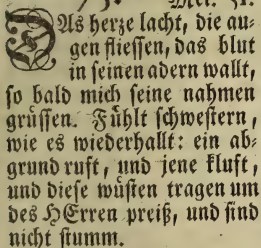 DAs herze lacht, die au-
gen fliessen, das blut
in seinen adern wallt,
so bald mich seine nahmen
grüssen. Fühlt schwestern,
wie es wiederhallt: ein ab-
grund ruft, und jene kluft,
und diese wüsten tragen um
des HErren preiß, und sind
nicht stumm.